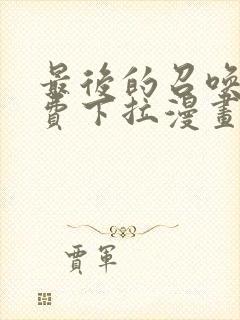 最後的召喚
費下拉漫畫
賈軍